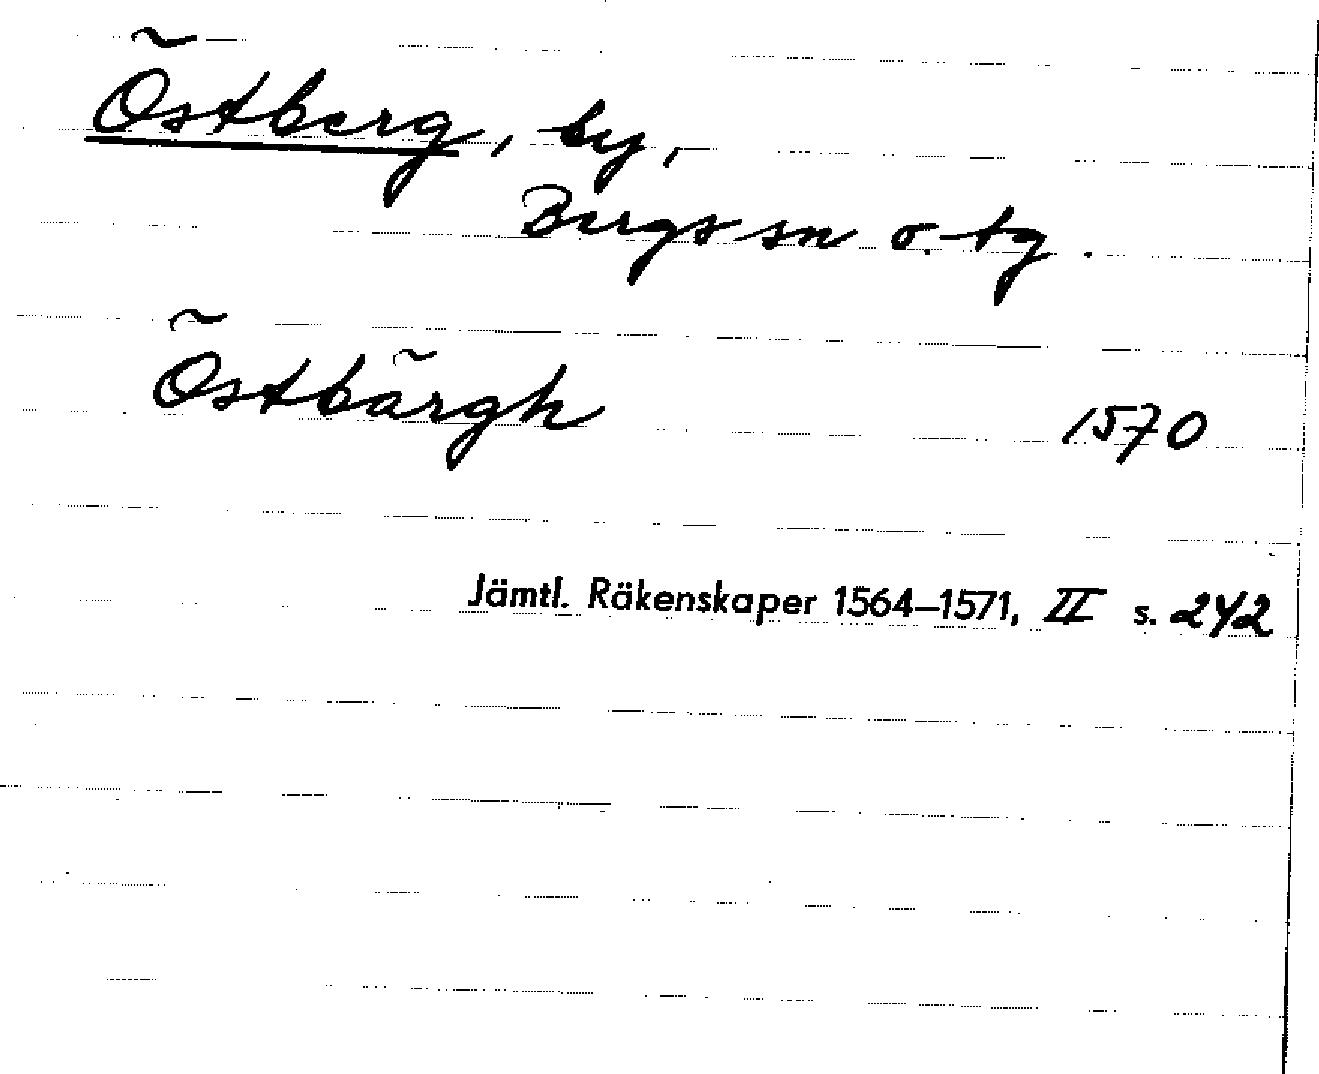 Östberg, by,
Bergs sn o. tg.
Östbärgh 1570
Jämtl. Räkenskaper 1564–1571, II s. 242